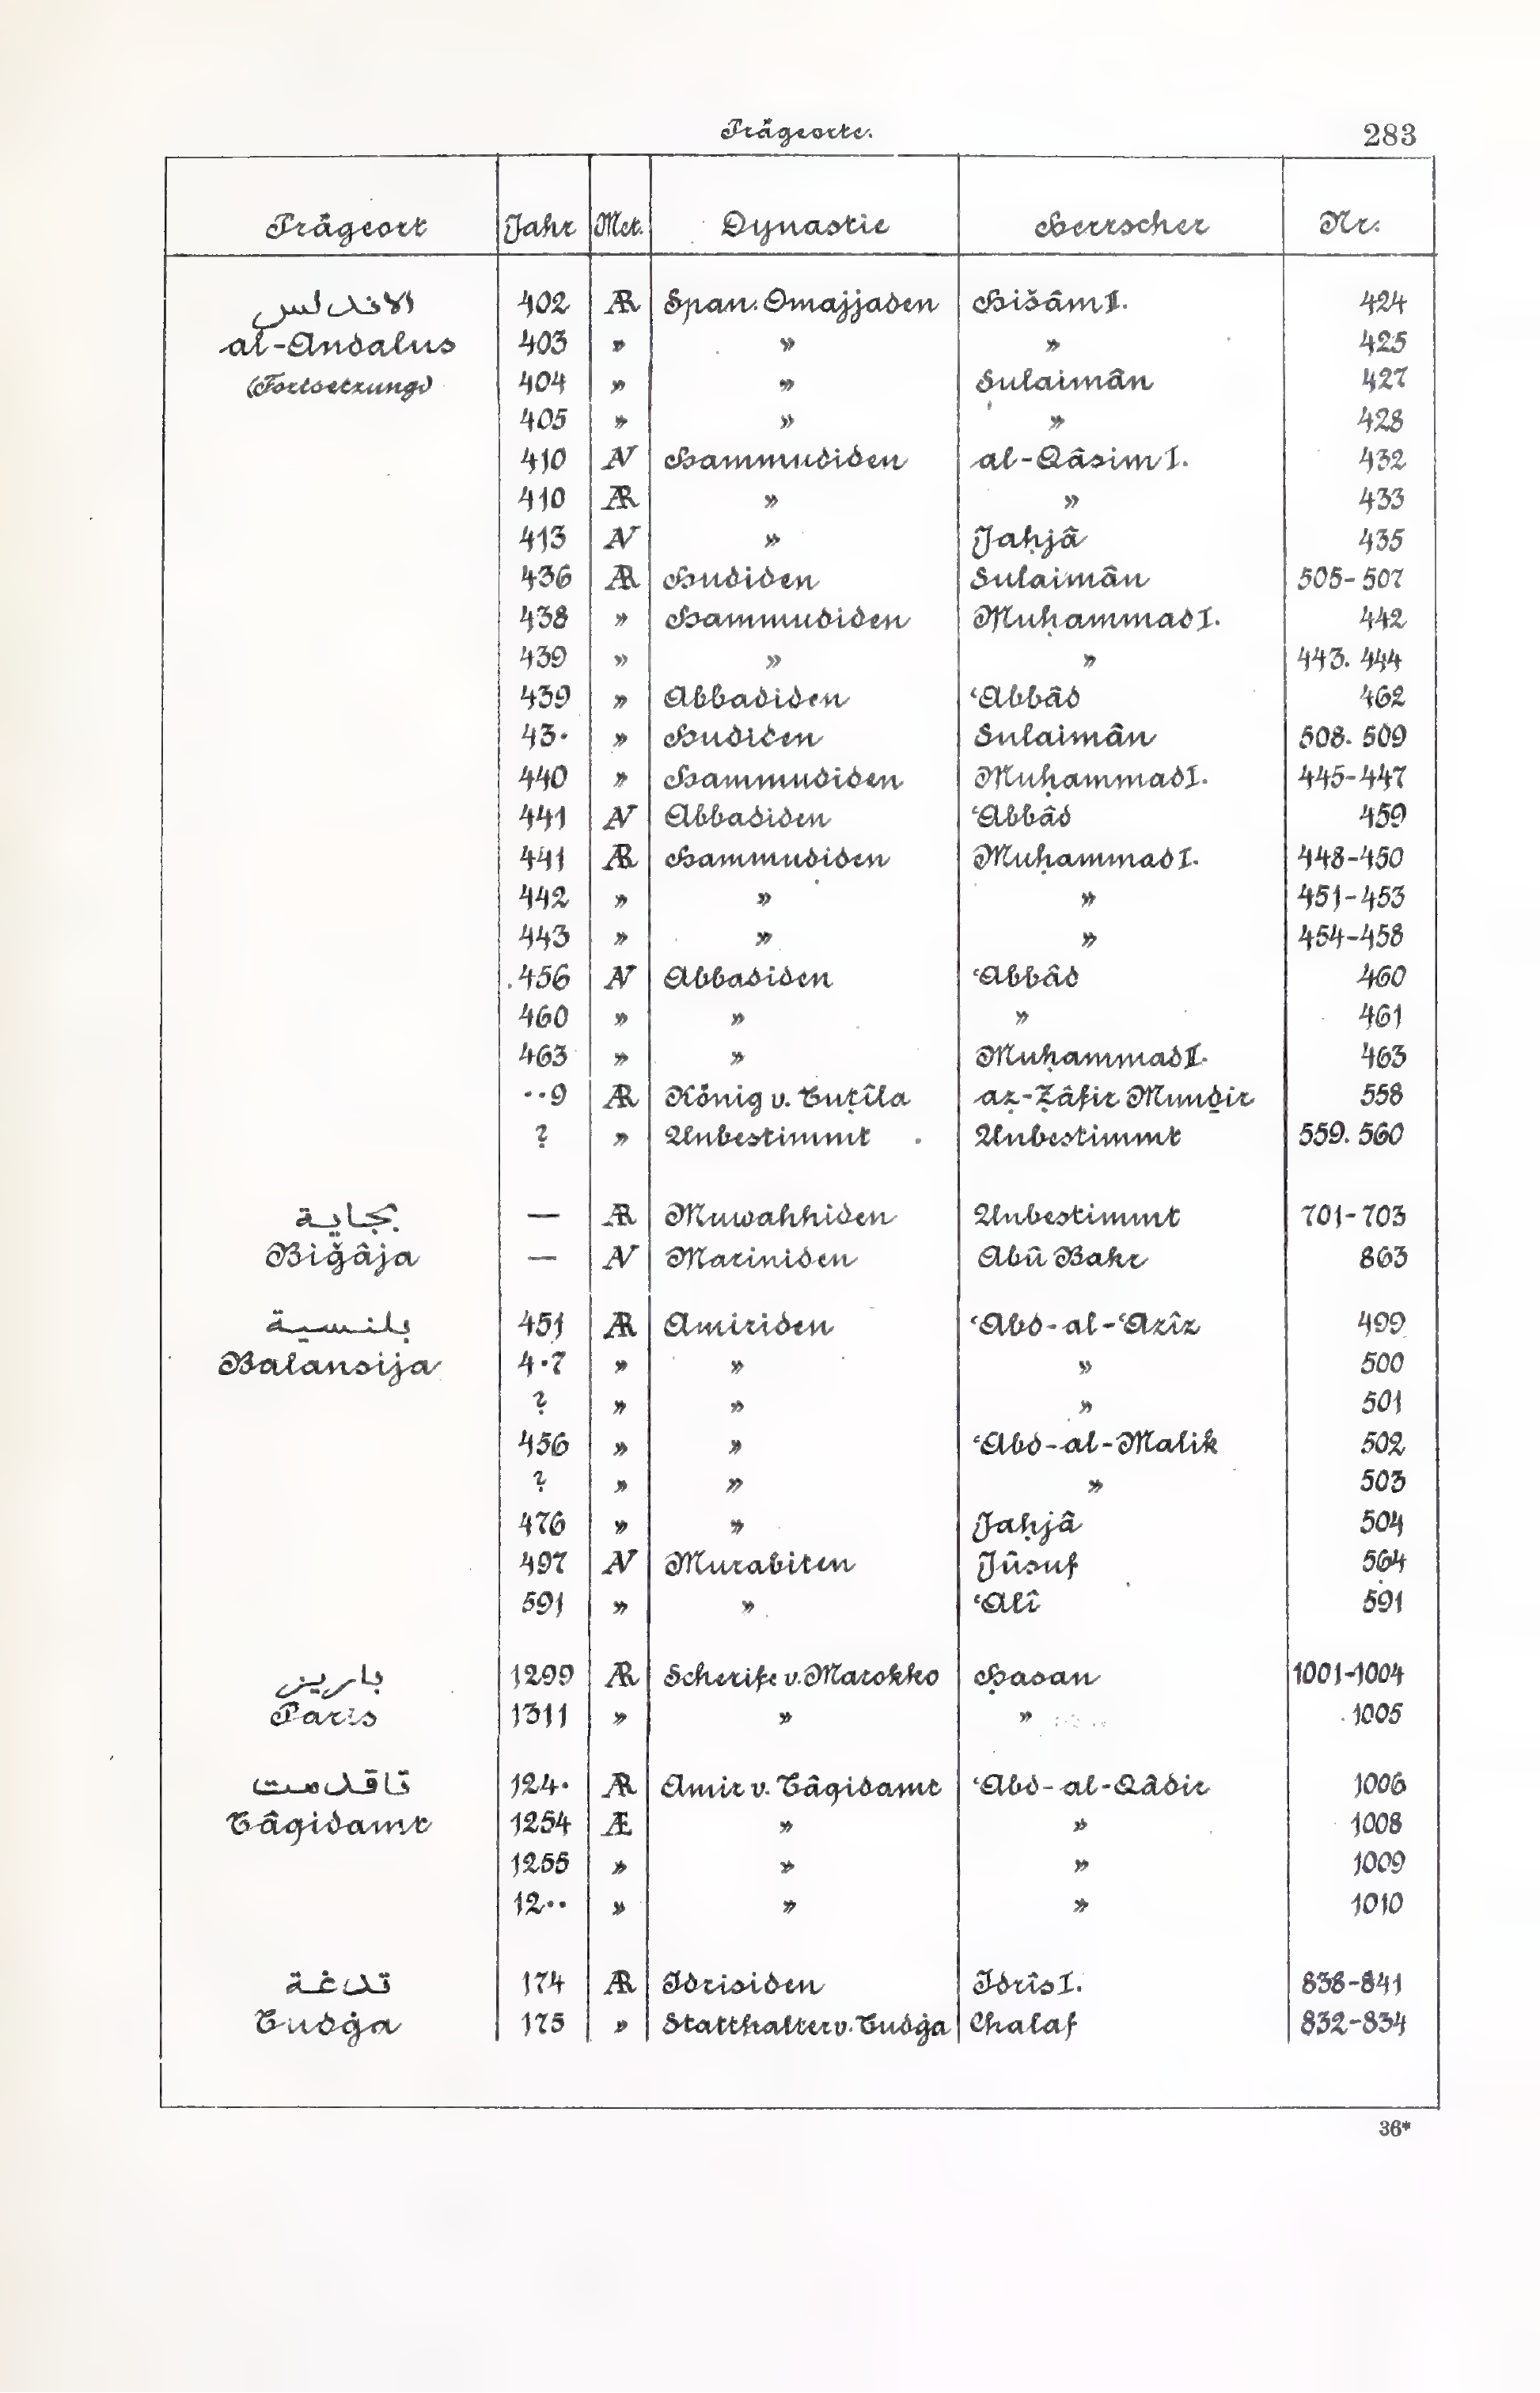 Prägeorte.
283
Prägeort Jahr Met. Dynastie Herrscher Nr.
الاندلس 402 AR Span. Omajjaden Hišâm II. 424
al-Andalus 403 » » » 425
(Fortsetzung) 404 » » Sulaimân 427
405 » » » 428
410 AV Hammudiden al-Qâsim I. 432
410 AR » » 433
413 AV » Jaḥjâ 435
436 AR Hudiden Sulaimân 505-507
438 » Hammudiden Muḥammad I. 442
439 » » » 443. 444
439 » Abbadiden ʿAbbâd 462
43· » Hudiden Sulaimân 508. 509
440 » Hammudiden Muḥammad I. 445-447
441 AV Abbadiden ʿAbbâd 459
441 AR Hammudiden Muḥammad I. 448-450
442 » » » 451-453
443 » » » 454-458
456 AV Abbadiden ʿAbbâd 460
460 » » » 461
463 » » Muḥammad II. 463
··9 AR König v. Tuṭîla aẓ-Ẓâfir Munḏir 558
? » Unbestimmt Unbestimmt 559. 560
بجاية — AR Muwahhiden Unbestimmt 701-703
Biǧâja — AV Mariniden Abû Bakr 863
بلنسية 451 AR Amiriden ʿAbd-al-ʿAzîz 499
Balansija 4·7 » » » 500
? » » » 501
456 » » ʿAbd-al-Malik 502
? » » » 503
476 » » Jaḥjâ 504
497 AV Murabiten Jûsuf 564
591 » » ʿAlî 591
باريز 1299 AR Scherife v. Marokko Ḥasan 1001-1004
Paris 1311 » » » 1005
تاقدمت 124· AR Amir v. Tâqidamt ʿAbd-al-Qâdir 1006
Tâqidamt 1254 Æ » » 1008
1255 » » » 1009
12·· » » » 1010
تدغة 174 AR Idrisiden Idrîs I. 838-841
Tudġa 175 » Statthalter v. Tudġa Chalaf 832-834
36*